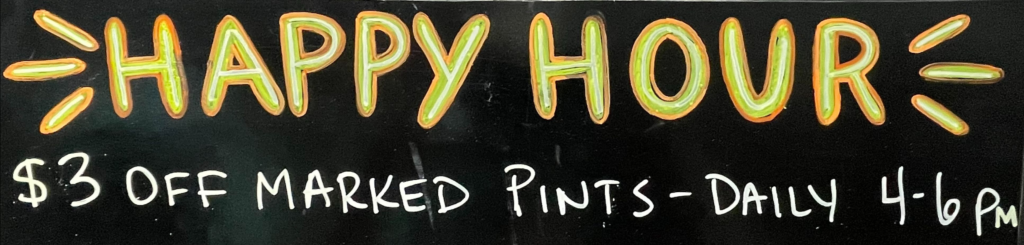 HAPPY HOUR
$3 OFF MARKED PINTS - DAILY 4-6 PM